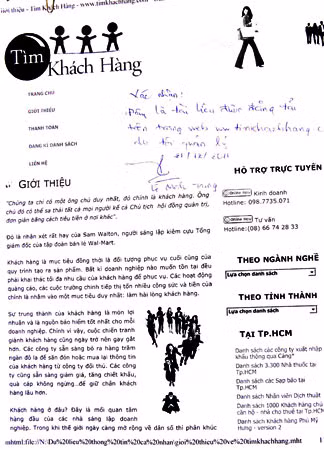 Giới thiệu - Tìm Khách Hàng - www.timkhachhang.com
Tìm
Khách Hàng
TRANG CHỦ
GIỚI THIỆU
THANH TOÁN
ĐĂNG KÍ DANH SÁCH
LIÊN HỆ
Xác nhận!
Đây là tài liệu được đăng tải
trên trang web www timkhachhang c
do tôi quản lý
GIỚI THIỆU
"Chúng ta chỉ có một ông chủ duy nhất, đó chính là khách hàng. Ông
chủ đó có thể sa thải tất cả mọi người kể cả Chủ tịch hội đồng quản trị,
đơn giản bằng cách tiêu tiền ở nơi khác".
Đó là nhận xét rất hay của Sam Walton, người sáng lập kiêm cựu Tổng
giám đốc của tập đoàn bán lẻ Wal-Mart.
Khách hàng là mục tiêu đồng thời là đối tượng phục vụ cuối cùng của
quy trình tạo ra sản phẩm. Bất kì doanh nghiệp nào muốn tồn tại đều
phải khai thác tối đa nhu cầu của khách hàng để phục vụ. Các hoạt động
quảng cáo, các cuộc trường chinh tiếp thị tốn nhiều công sức và tiền của
chính là nhằm vào một mục tiêu duy nhất: làm hài lòng khách hàng.
Sự trung thành của khách hàng là món lợi
nhuận và là nguồn bảo hiểm tốt nhất cho mỗi
doanh nghiệp. Chính vì vậy, cuộc chiến tranh
giành khách hàng cũng ngày trở nên gay gắt
hơn. Các công ty sẵn sàng bỏ ra hàng trăm
ngàn đô la để săn đón hoặc mua lại thông tin
của khách hàng từ công ty đối thủ. Các công
ty cũng sẵn sàng giảm giá, tăng chiết khấu,
quà cáp không ngừng...để giữ chân khách
hàng lâu hơn.
Khách hàng ở đâu? Đây là mối quan tâm
hàng đầu của các nhà sáng lập doanh
nghiệp. Trong khi thế giới ngày càng mở rộng về dân số thì phân khúc
HỖ TRỢ TRỰC TUYẾN
Kinh doanh
Hotline: 098.7735.071
Tư vấn
Hotline:(08) 66 74 28 33
THEO NGÀNH NGHỀ
Lựa chọn danh sách
THEO TỈNH THÀNH
Lựa chọn danh sách
TẠI TP.HCM
Danh sách các công ty xuất nhập
khẩu thông qua Cảng*
Danh sách 3.300 Nhà thuốc tại
Tp.HCM
Danh sách các Sạp báo tại
Tp.HCM
Danh sách Nhân viên Dịch thuật
Danh sách 1000 Khách hàng chủ
căn hộ - nhà cho thuê tại Tp.HCM
Danh sách khách hàng Phú Mỹ
Hưng - version 2
mhtml:file://N:\Du%20lieu%20thong%20tin%20ca%20nhan\gioi%20thieu%20ve%20timkhachhang.mht
1